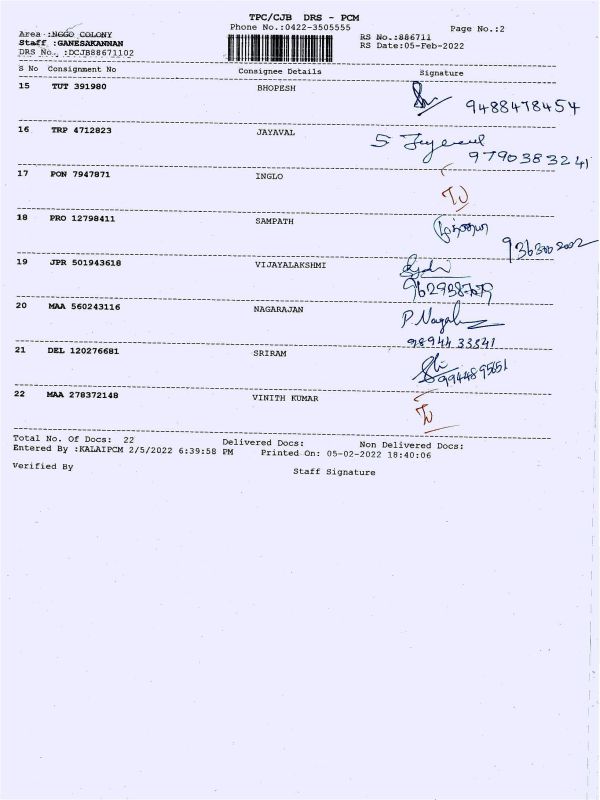 TPC/CJB DRS - PCM
Phone No.:0422-3505555 Page No.:2
Area :NGGO COLONY
Staff :GANESAKANNAN RS No.:886711
DRS No. :DCJB88671102 RS Date:05-Feb-2022
S No Consignment No Consignee Details Signature
15 TUT 391980 BHOPESH
9488478454
16 TRP 4712823 JAYAVAL
9790383241
17 PON 7947871 INGLO
18 PRO 12798411 SAMPATH
19 JPR 501943618 VIJAYALAKSHMI
20 MAA 560243116 NAGARAJAN
P. Nagal
9894433341
21 DEL 120276681 SRIRAM
22 MAA 278372148 VINITH KUMAR
Total No. Of Docs: 22 Delivered Docs: Non Delivered Docs:
Entered By :KALAIPCM 2/5/2022 6:39:58 PM Printed On: 05-02-2022 18:40:06
Verified By Staff Signature